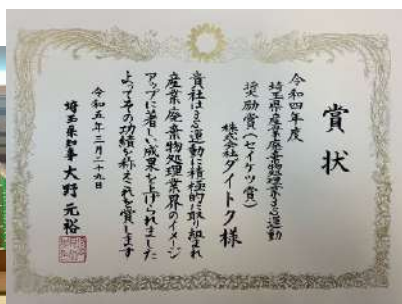 賞状
令和四年度
埼玉県産業廃棄物処理業3S運動
奨励賞(セイケツ賞)
株式会社ダイトク様
貴社は3S運動に積極的に取り組まれ
産業廃棄物処理業界のイメージ
アップに著しい成果を上げられました
よってその功績を称えこれを賞します
令和五年三月二十九日
埼玉県知事 大野元裕